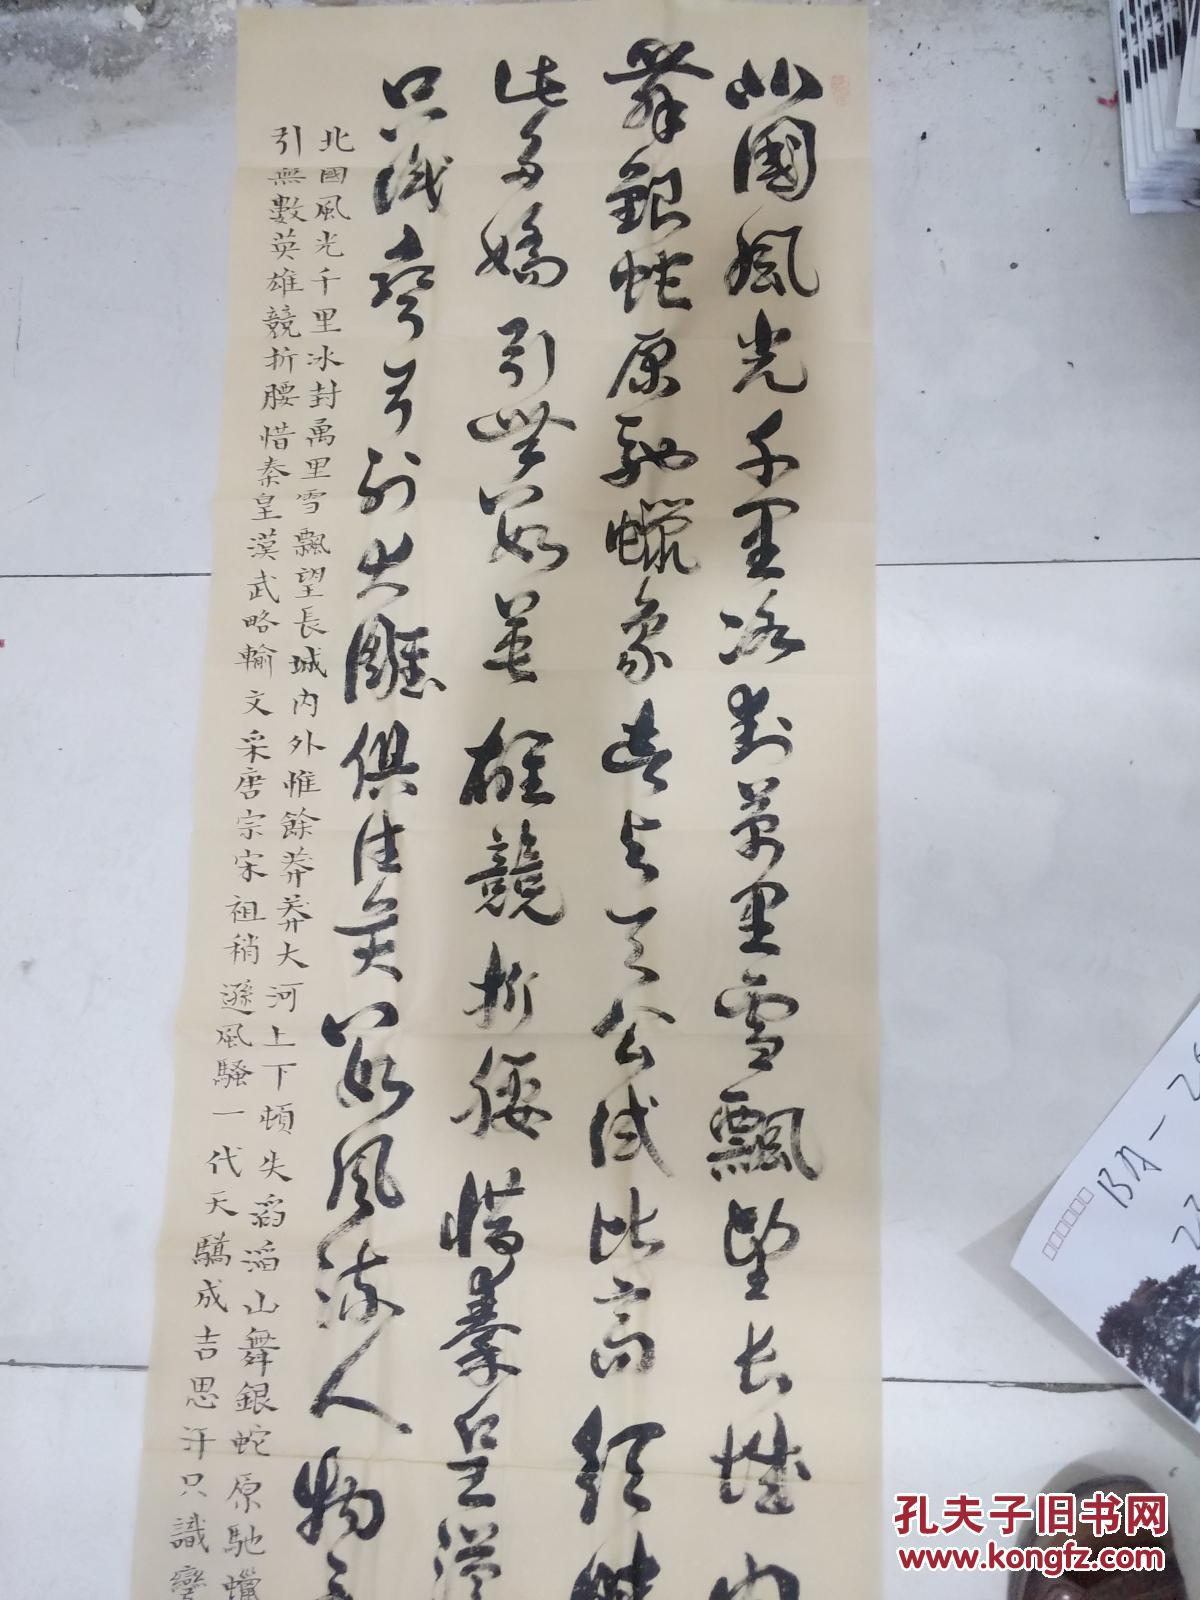 北國風光千里冰封萬里雪飄望長城內
舞銀蛇原馳蠟象欲與天公試比高須晴
此多嬌引無數英雄競折腰惜秦皇漢
只識彎弓射大雕俱往矣數風流人物
北國風光千里冰封萬里雪飄望長城內外惟餘莽莽大河上下頓失滔滔山舞銀蛇原馳蠟
引無數英雄競折腰惜秦皇漢武略輸文采唐宗宋祖稍遜風騷一代天驕成吉思汗只識彎
BA-
孔夫子旧书网
www.kongfz.com